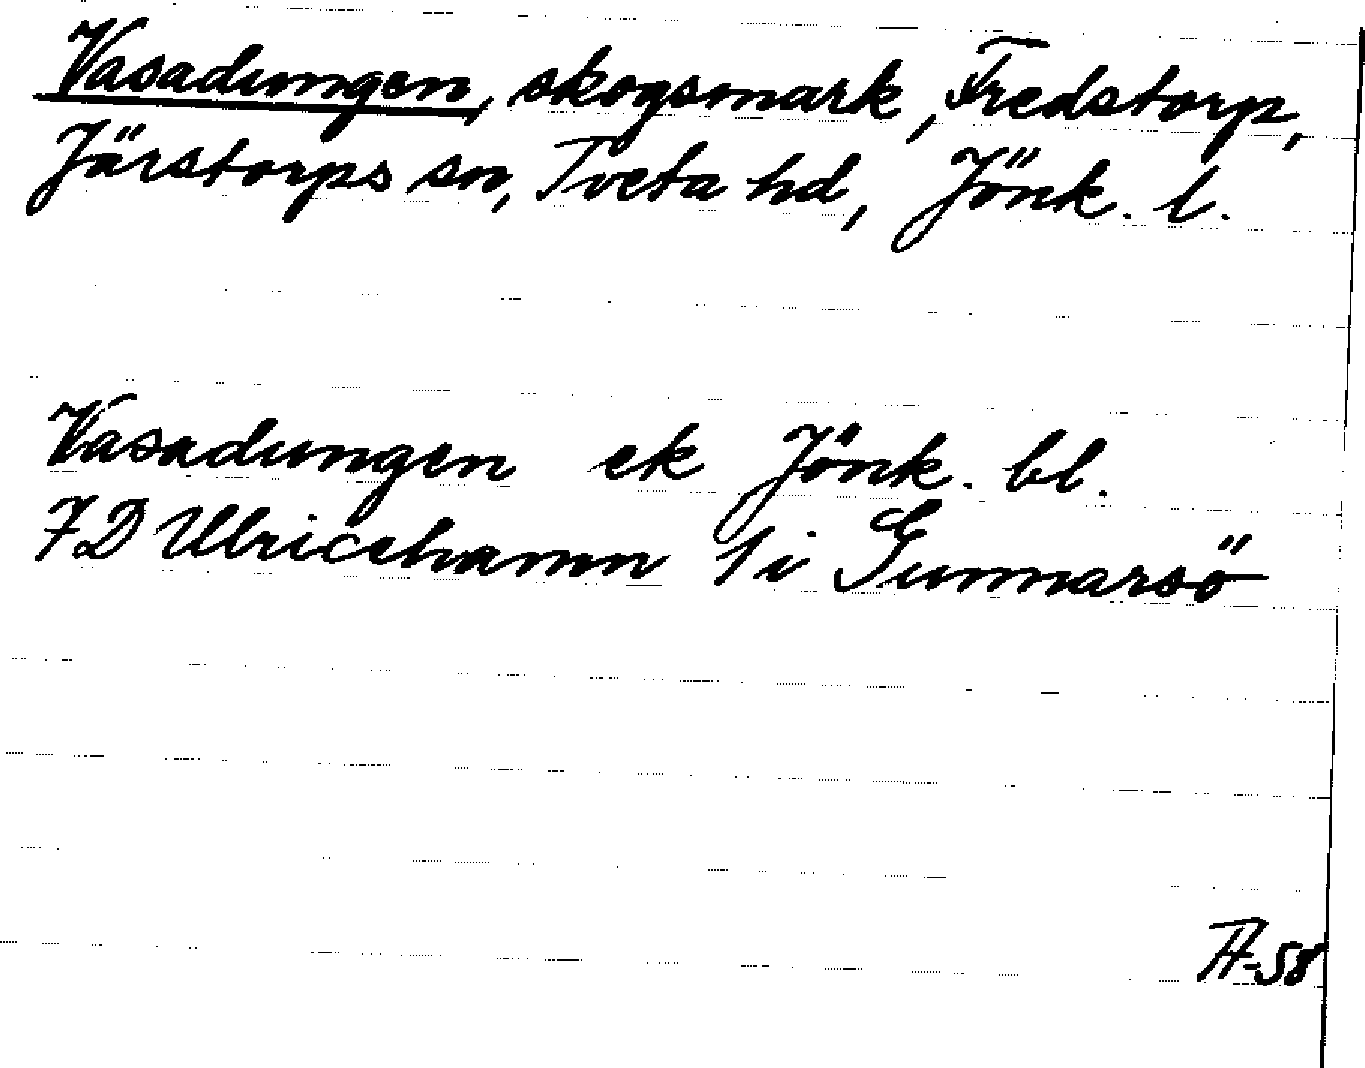 Vasadungen, skogsmark, Fredstorp,
Järstorps sn, Tveta hd, Jönk. l.
Vasadungen ek Jönk. bl.
7D Ulricehamn 1i Gunnarsö
-58